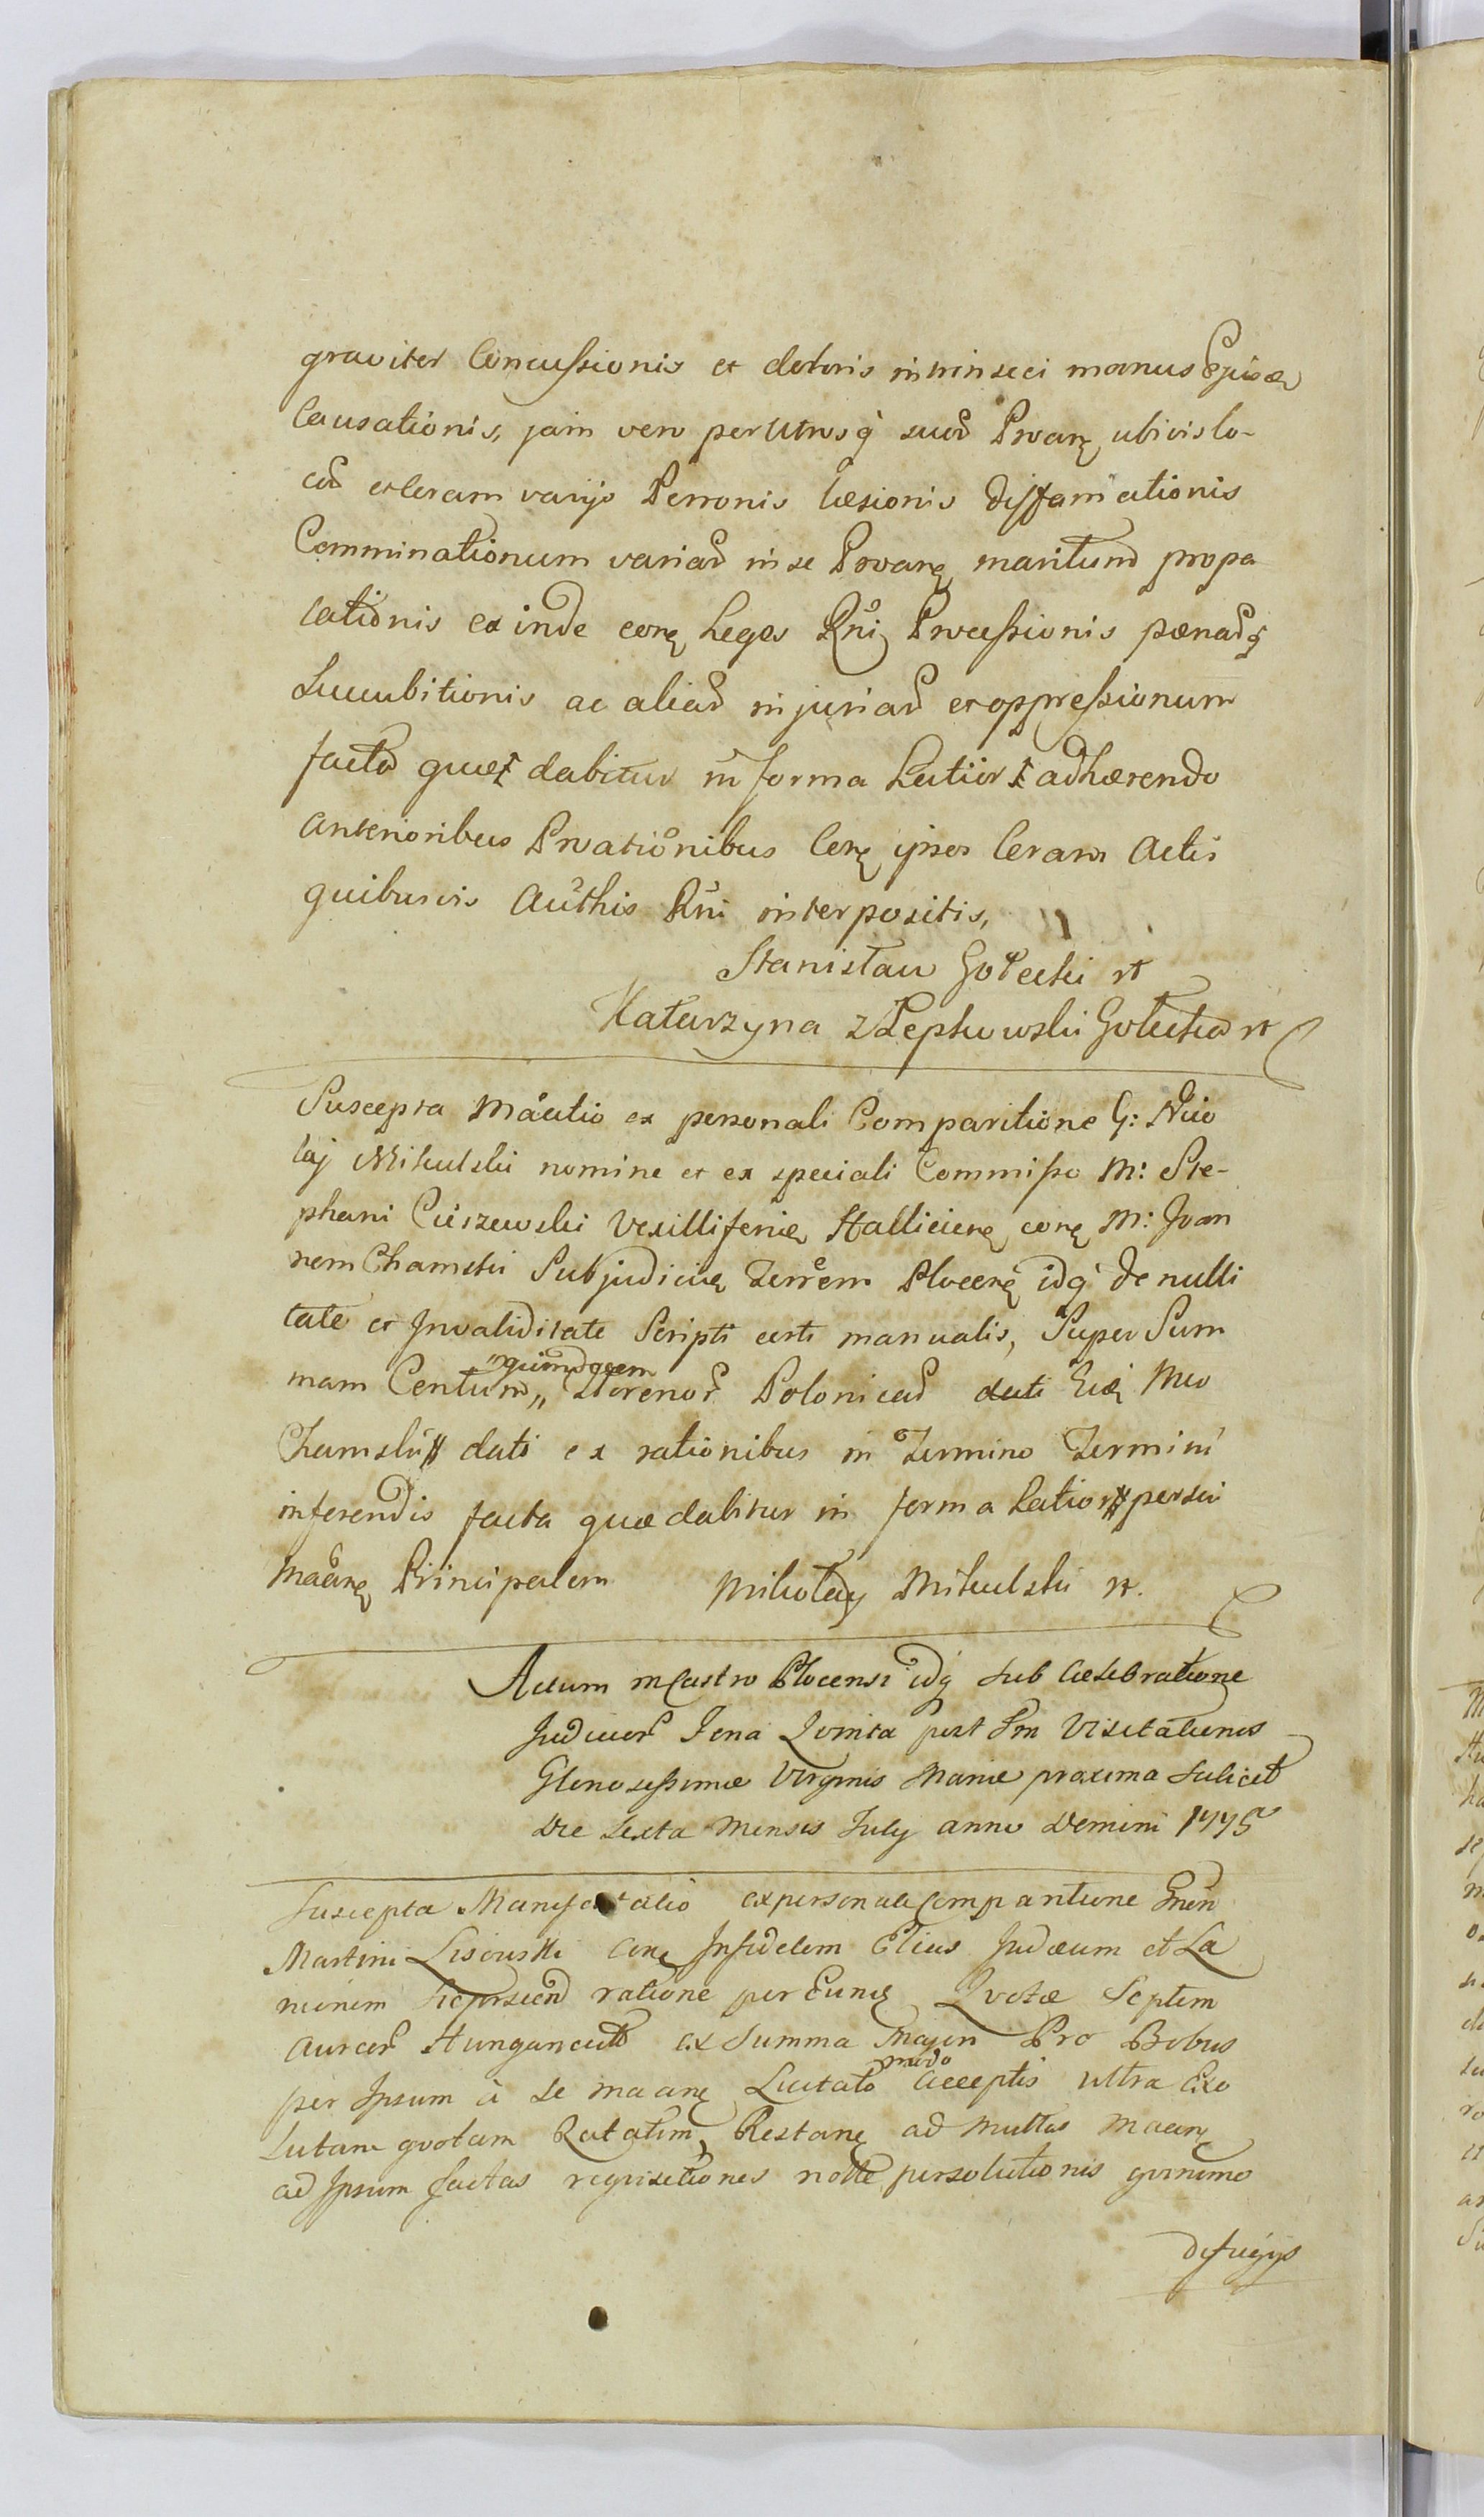 graviter Concussionis et doloris intrinseci manus Ejusdem
Causationis, jam vero per utrosq suod Proarę ubivis lo-
cod et coram varijs Personis læsionis diffamationis
Comminationum variad in se Proarę maritumq propa
lationis exinde corę Leges Rni Processionis pænadq
Succubitionis ac aliad injuriad et oppressionum
facta quæ dabitur in forma Latiori adhærendo
anterioribus Proationibus Corę ipsos Coram Actis
quibusvis Authis Rni interpositis,
Stanisław Gołecki
Katarzyna z Łepkowski Gołecka
Suscepta Maatio ex personali Comparitione G: Nico
laj Mikulski nomine et ex speciali Commisso M: Ste-
phani Cieszewski Vexilliferidæ Halliciens corę M: Joan
nem Chamski Subjudicem Terrem Plocenę idq de nulli
tate et Invaliditate Scripti certi manualis, Super Sum
mam Centum „quindecem florenor Polonicad Eid Mco
Chamski dati ex rationibus in Termino Termini
inferendis facta quæ dabitur in forma Latiori per sui
Maarę Principalem Mikołay Mikulski
Actum in Castro Plocensi idq sub Cælebratione
Judicior Feria Quinta post Fm Visitationis
Gloriosissimæ Virginis Mariæ proxima scilicet
die sexta Mensis July anno Domini 1775
Suscepta Manifestatio ex personali Comparitione Gnen
Martini Lisowski Corę Infidelem Elius Judæum et La
nionem ratione per Eundę Quotæ Septem
Aureor Hungaricald ex Summa majori Pro Bobus
per Ipsum a se maarę Licitato modo acceptis ultra Exo
lutam quotam Ratatim, Restanę ad multas Maarę
ad Ipsum factas requisitiones nolle persolutionis quinimo
defugijs